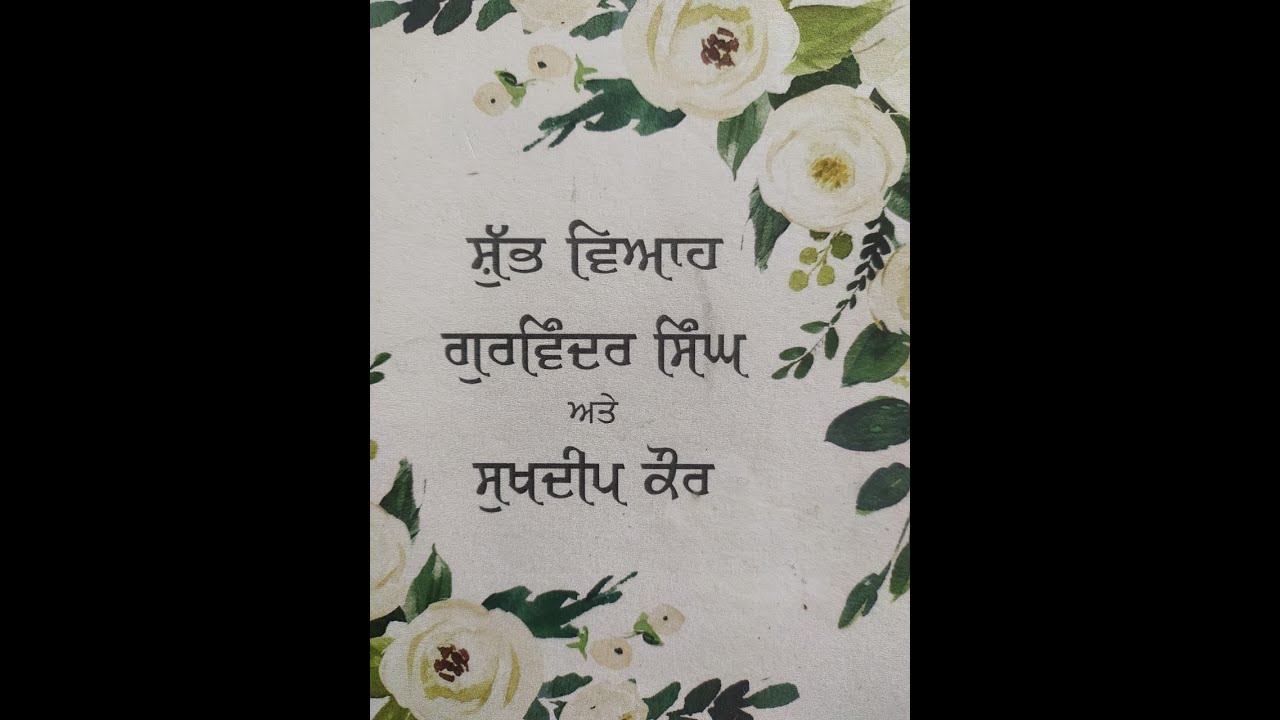 ਸ਼ੁੱਭ ਵਿਆਹ
ਗੁਰਵਿੰਦਰ ਸਿੰਘ
ਅਤੇ
ਸੁਖਦੀਪ ਕੌਰ